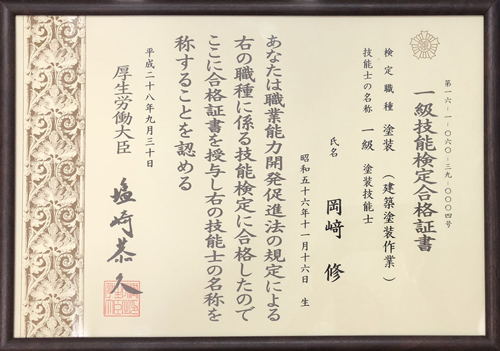 第一六-一-〇六〇-三九-〇〇〇四号
一級技能検定合格証書
検定職種 塗装 （建築塗装作業）
技能士の名称 一級 塗装技能士
氏名 岡﨑 修
昭和五十六年十一月十六日 生
あなたは職業能力開発促進法の規定による
右の職種に係る技能検定に合格したので
ここに合格証書を授与し右の技能士の名称を
称することを認める
平成二十八年九月三十日
厚生労働大臣 塩崎恭久